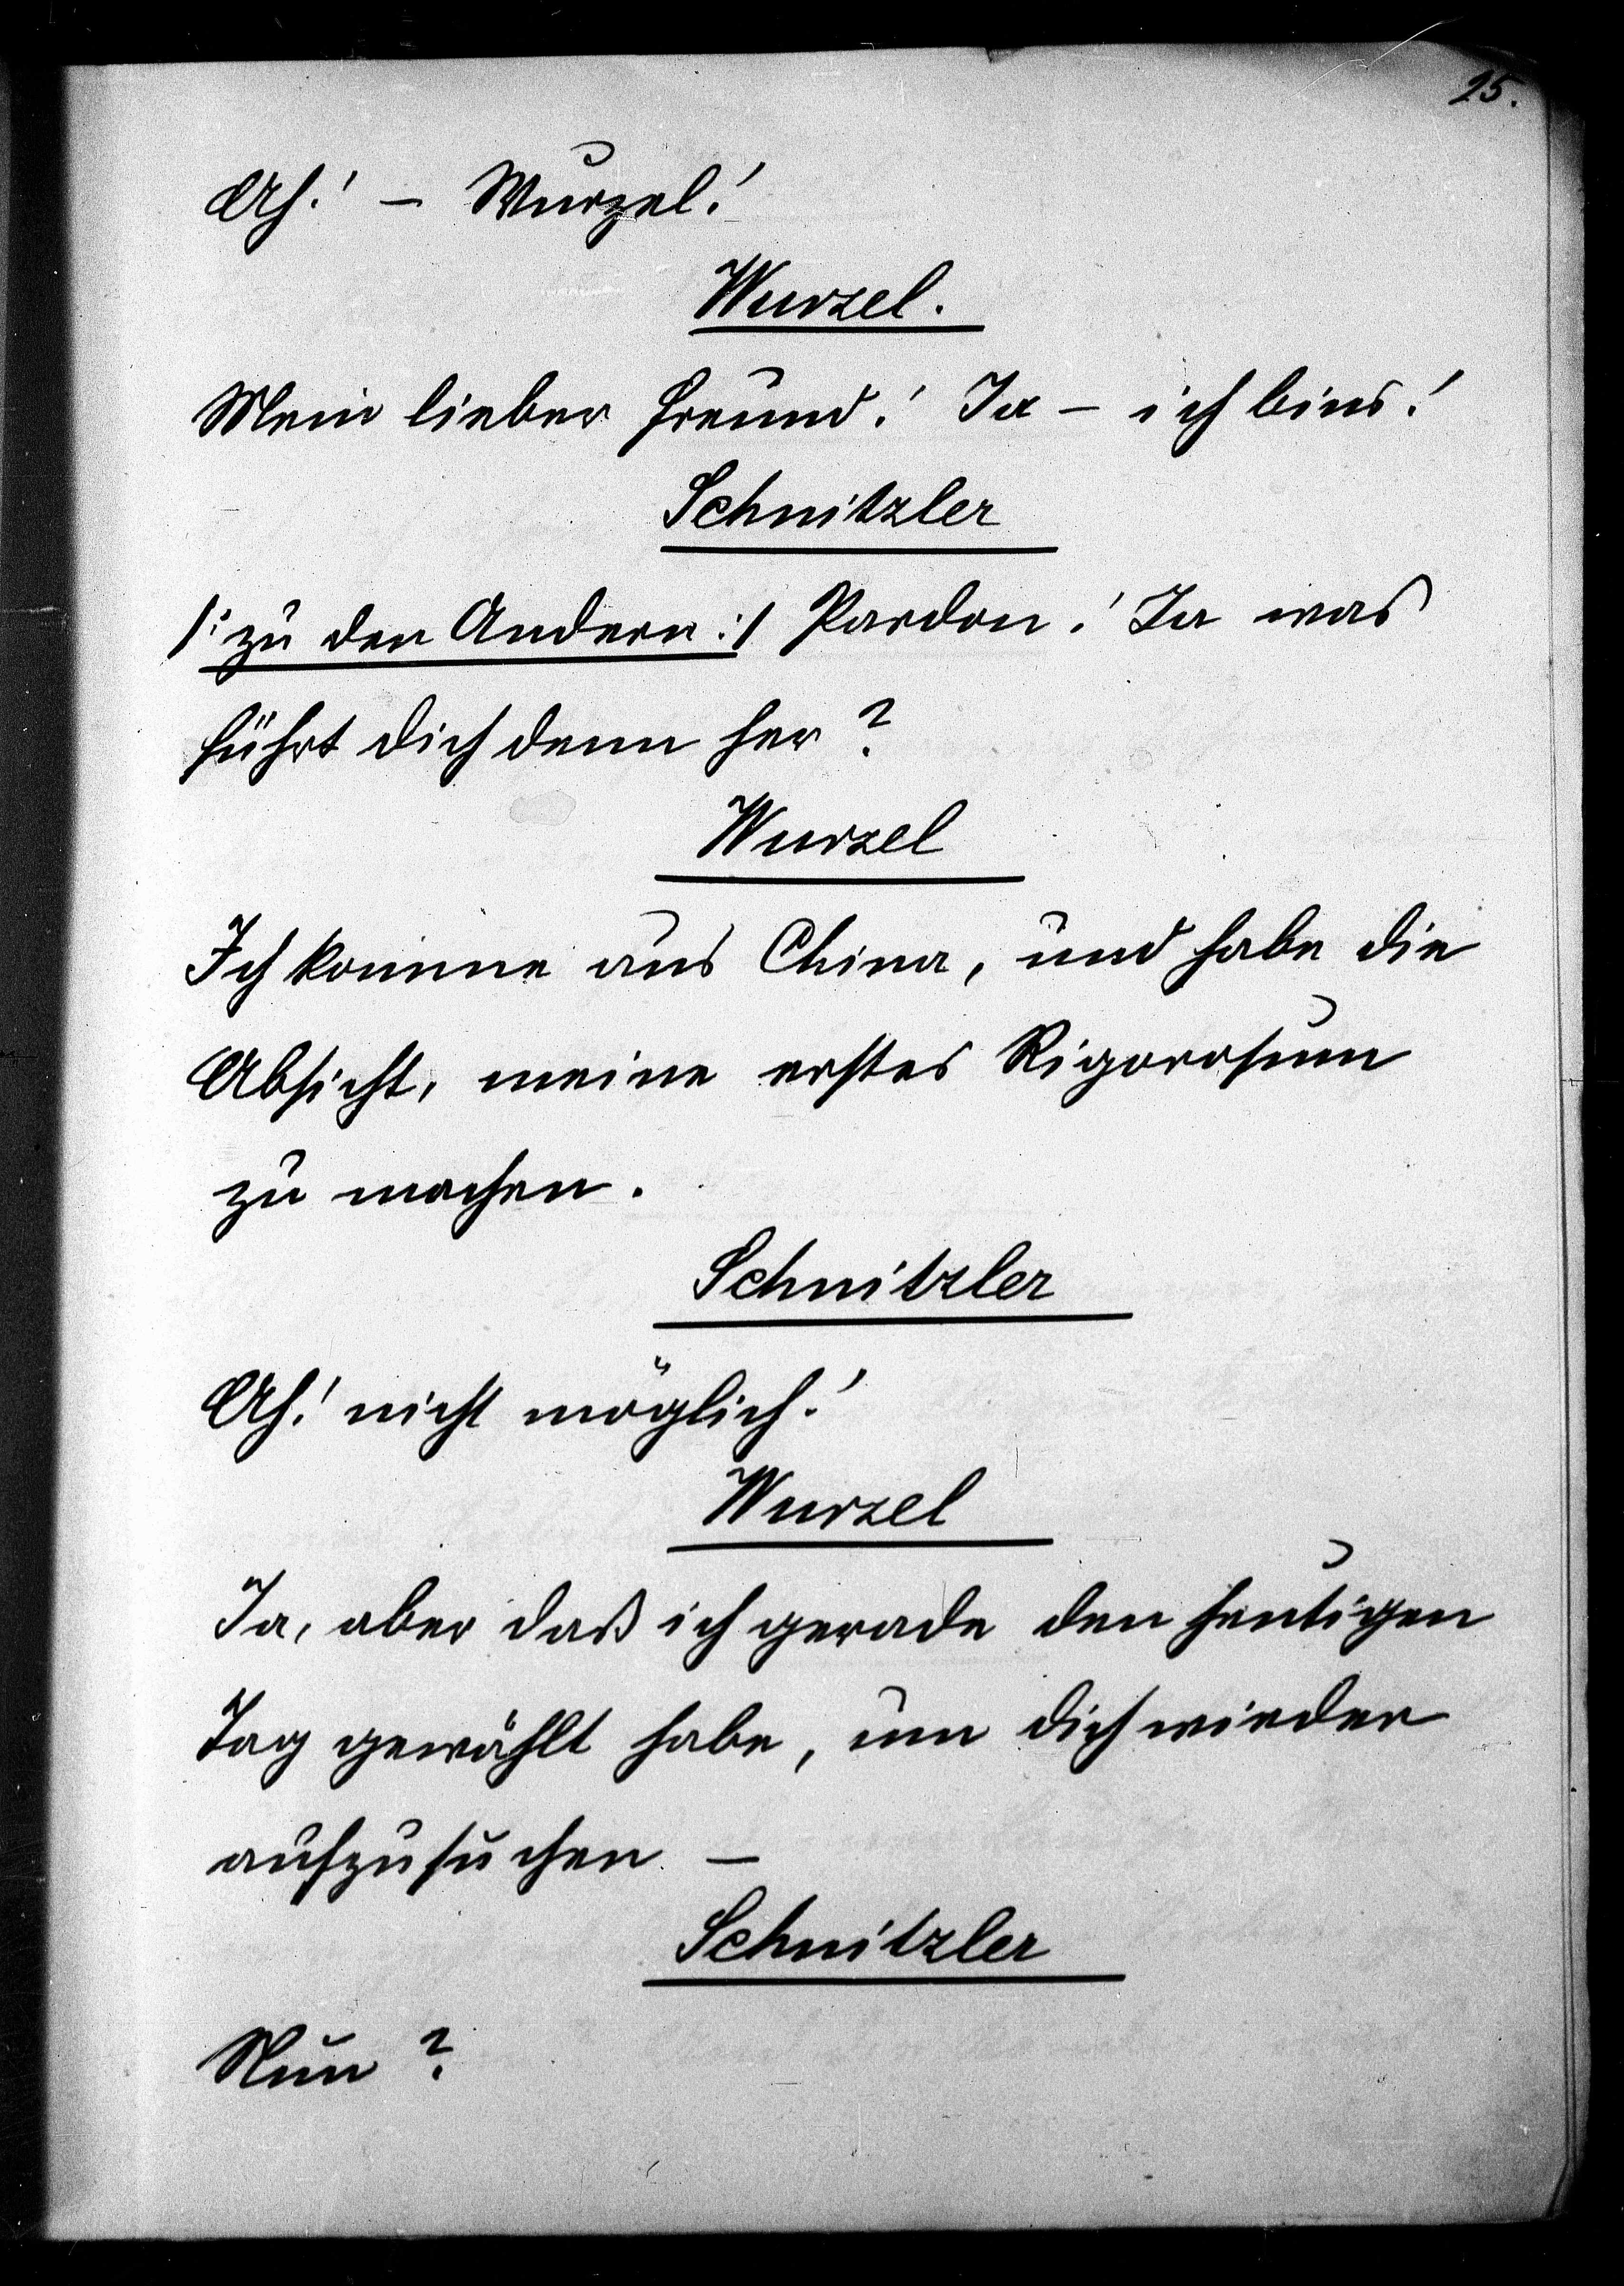 25.
Ah! – Wurzel!
Wurzel.
Mein lieber Freund! Ja – ich bins!
Schnitzler
/: zu den Andern :/ Pardon! Ja was
führt dich denn her?
Wurzel
Ich komme aus China, und habe die
Absicht, meine erstes Rigorosum
zu machen.
Schnitzler
Ah! nicht möglich!
Wurzel
Ja, aber daß ich gerade den heutigen
Tag gewählt habe, um dich wieder
aufzusuchen –
Schnitzler
Nun?